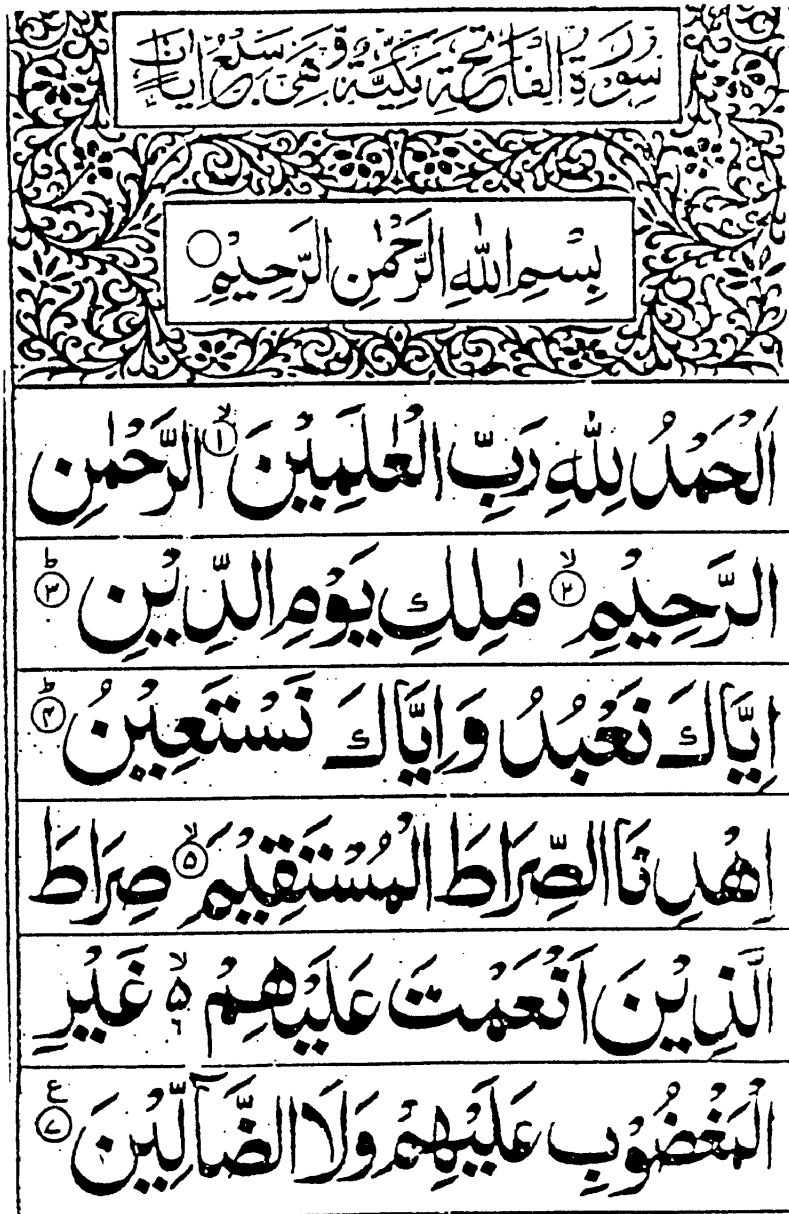 سُوْرَةُ الْفَاتِحَةِ مَكِّيَّةٌ وَّهِىَ سَبْعُ اٰيَاتٍ
بِسْمِ اللّٰهِ الرَّحْمٰنِ الرَّحِيْمِ ○
اَلْحَمْدُ لِلّٰهِ رَبِّ الْعٰلَمِيْنَ ۙ﴿۱﴾ الرَّحْمٰنِ
الرَّحِيْمِ ۙ﴿۲﴾ مٰلِكِ يَوْمِ الدِّيْنِ ؕ﴿۳﴾
اِيَّاكَ نَعْبُدُ وَاِيَّاكَ نَسْتَعِيْنُ ؕ﴿۴﴾
اِهْدِنَا الصِّرَاطَ الْمُسْتَقِيْمَ ۙ﴿۵﴾ صِرَاطَ
الَّذِيْنَ اَنْعَمْتَ عَلَيْهِمْ ۙ۵ ٦ غَيْرِ
الْمَغْضُوْبِ عَلَيْهِمْ وَلَا الضَّآلِّيْنَ ﴿۷﴾ ع